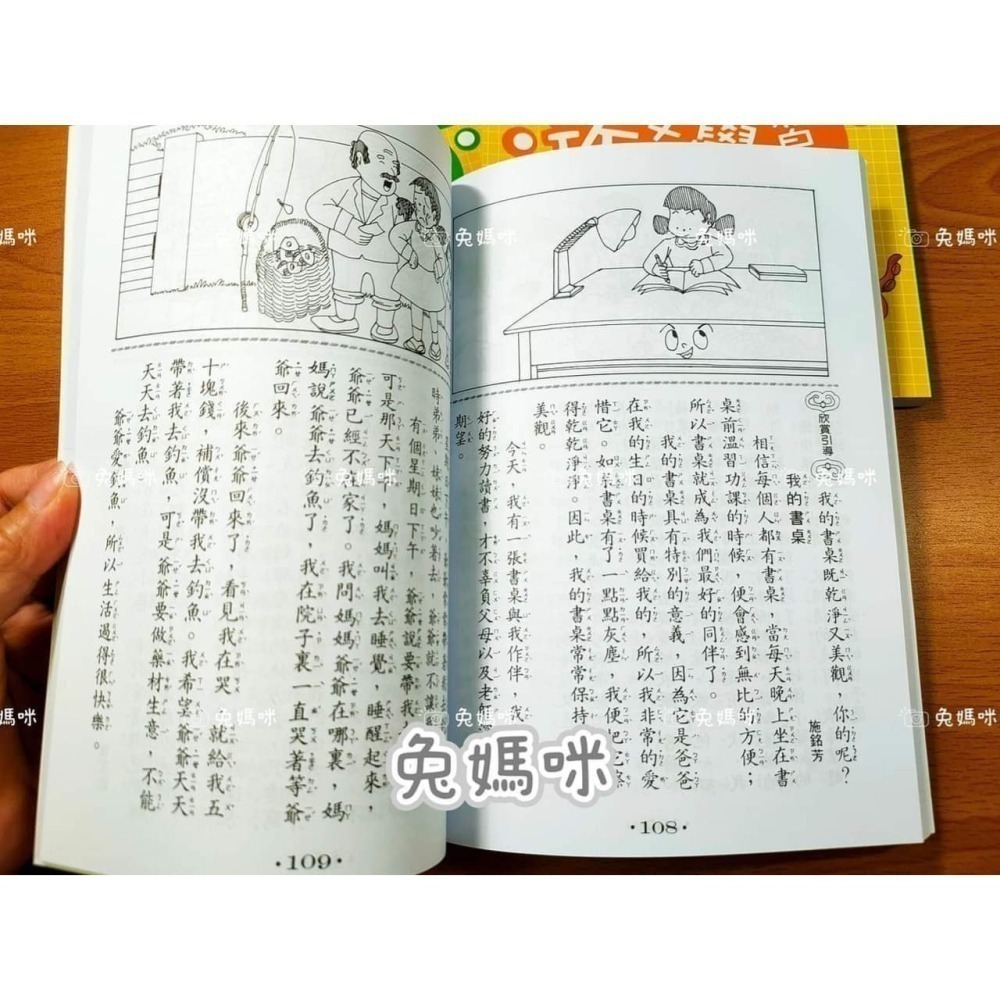 作文學習
欣賞引導
我的書桌既乾淨又美觀，你的呢？
我的書桌
施銘芳
相信每個人都有書桌，當每天晚上坐在書
桌前溫習功課的時候，便會感到無比的方便；
所以書桌就成為我們最好的同伴了。
我的書桌具有特別的意義，因為它是爸爸
在我的生日的時候買給我的，所以我非常的愛
惜它。如果書桌有了一點點灰塵，我便把它擦
得乾乾淨淨。因此，我的書桌常常保持
美觀。
今天，我有一張書桌與我作伴，我
好的努力讀書，才不辜負父母以及老師
期望。
·108·
時弟弟、妹妹也吵著去，爺爺就不讓
有個星期日下午，爺爺說要帶我
可是那天下午，媽媽叫我去睡覺，睡醒起來，
爺爺已經不在家了。我問媽媽爺爺在哪裏，媽
媽說爺爺去釣魚了，我在院子裏一直哭著等爺
爺回來。
後來爺爺回來了，看見我在哭，就給我五
十塊錢，補償沒帶我去釣魚。我希望爺爺天天
帶著我去釣魚，可是爺爺要做藥材生意，不能
天天去釣魚。
爺爺愛釣魚，所以生活過得很快樂。
·109·
兔媽咪
兔媽咪
兔媽咪
兔媽咪
兔媽咪
兔媽咪
兔媽咪